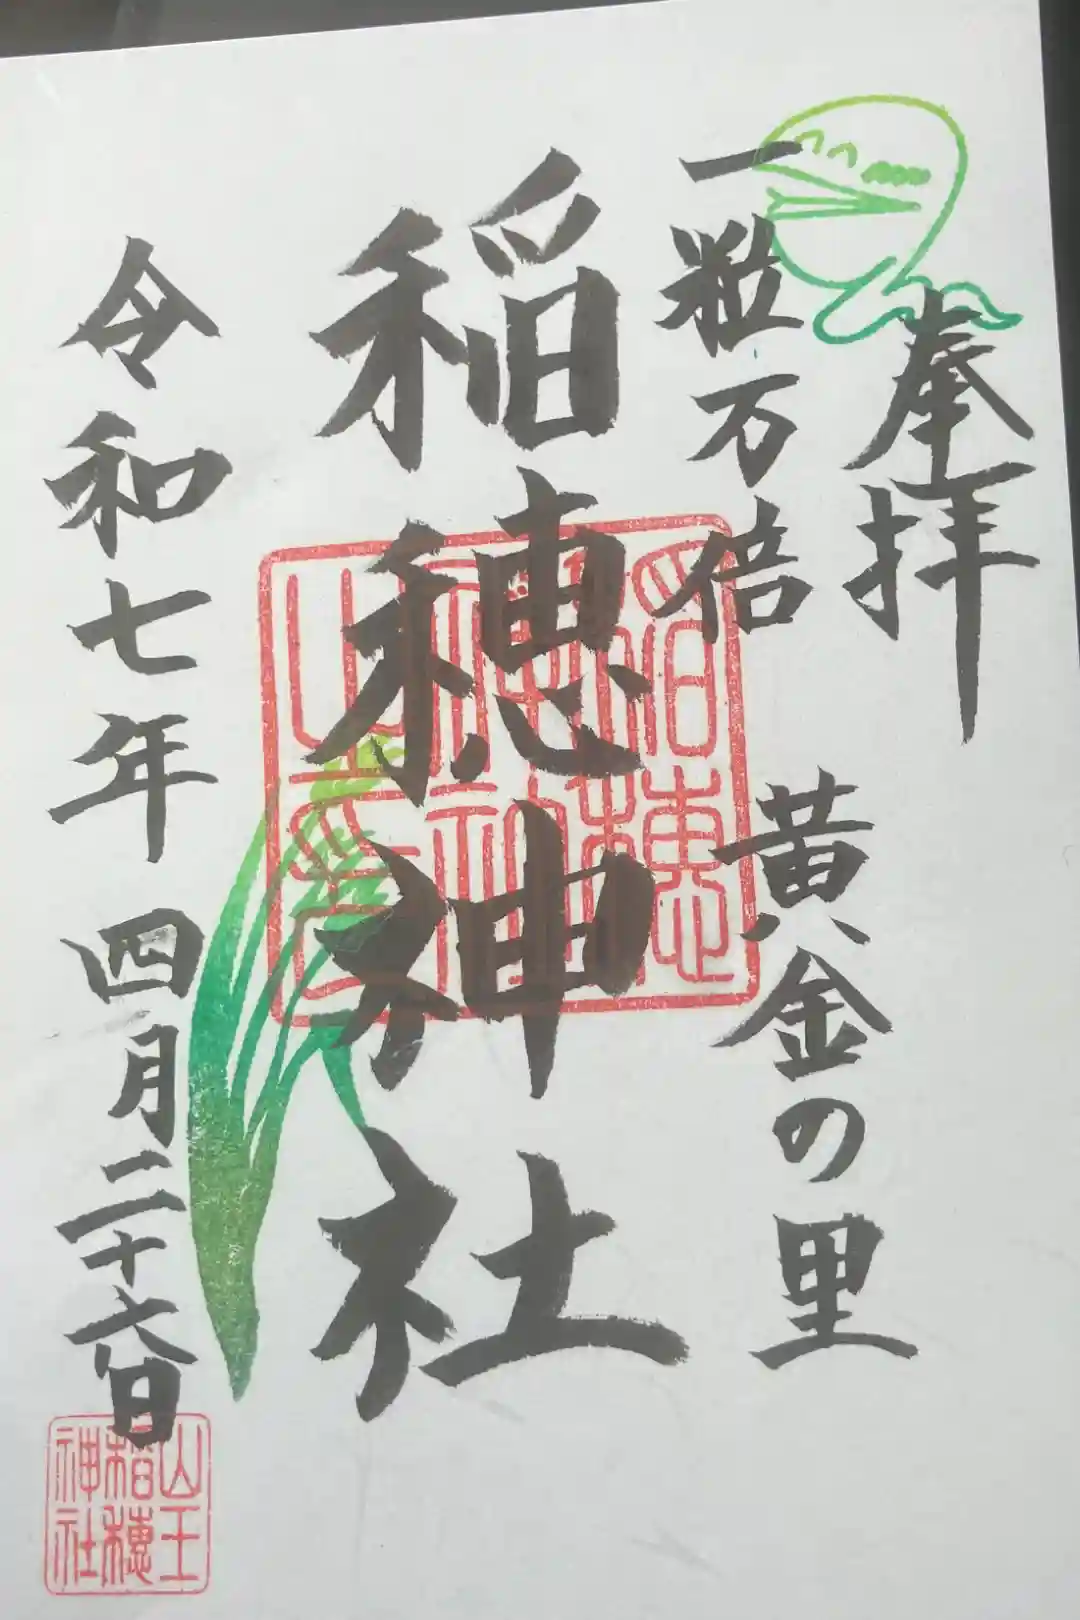 奉拝
一粒万倍 黄金の里
稲穂神社
令和七年 四月二十六日
山王
稲穂
神社